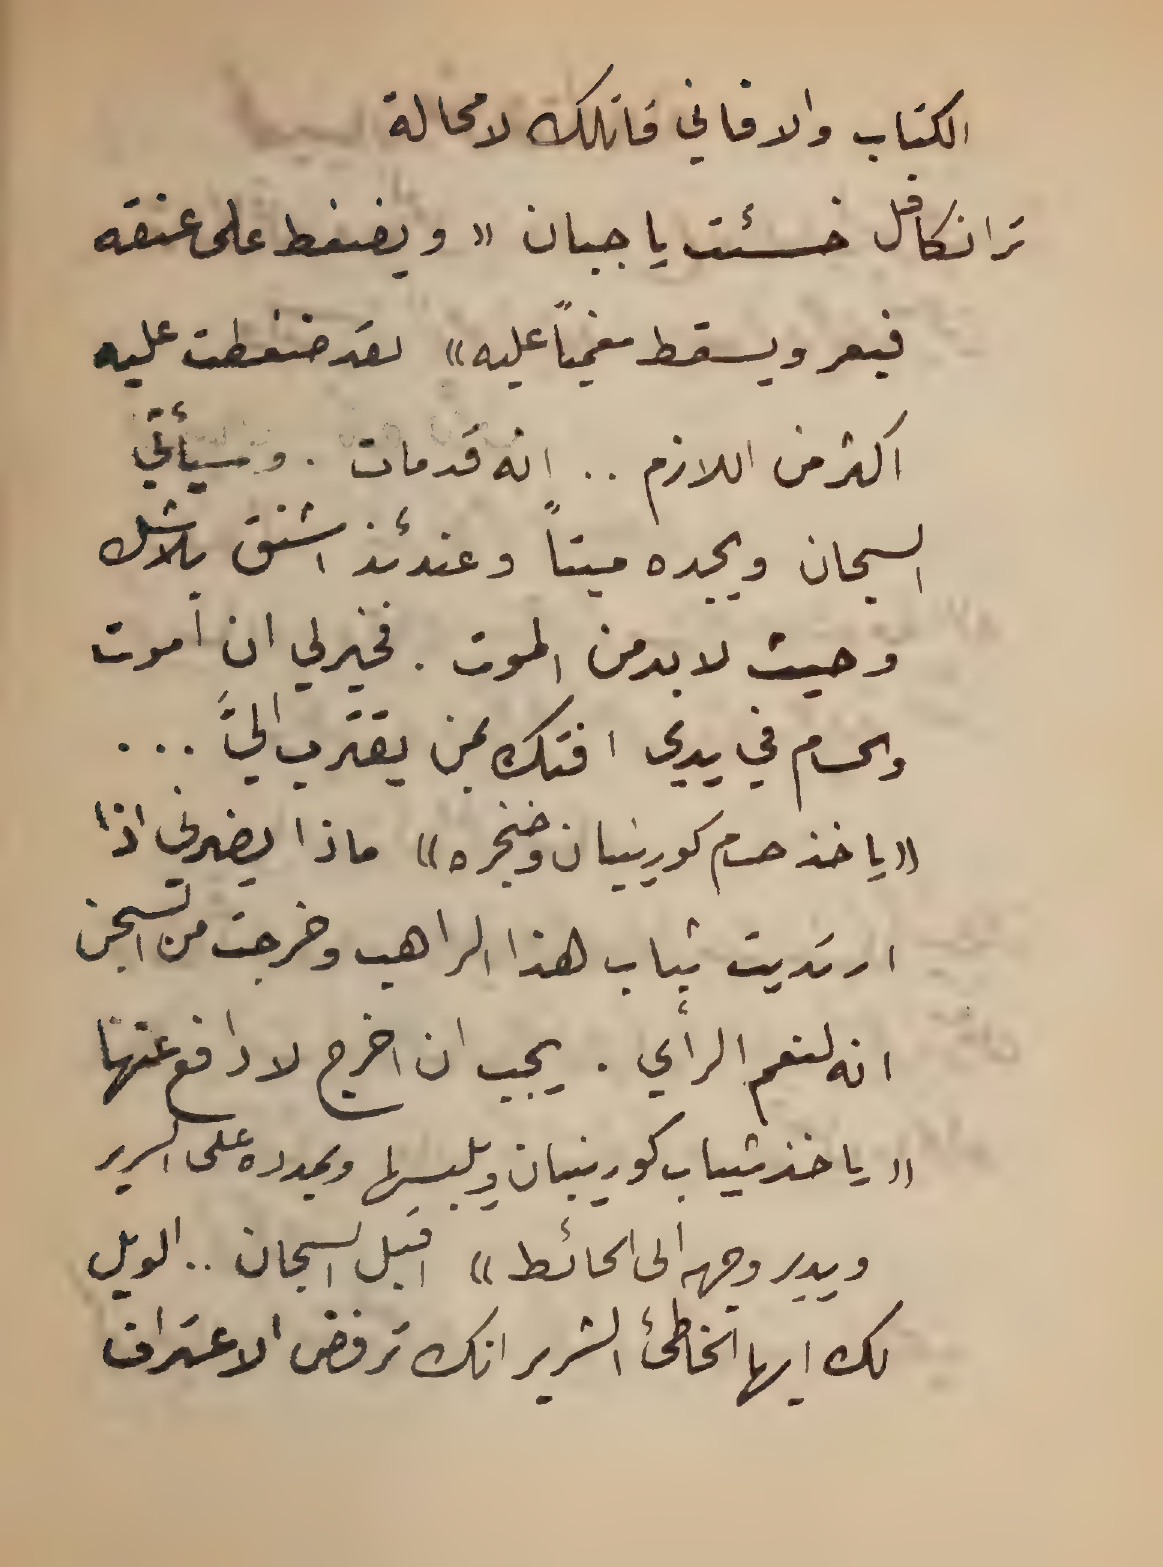 الكتاب والا فاني قاتلك لا محالة
ترانكافل خسئت يا جبان « ويضغط على عنقه
فيعر ويسقط مغمياً عليه» لقد ضغطت عليه
اكثر من اللازم .. انه قد مات . وسيأتي
السجان ويجده ميتاً وعندئذ اشنق بلا شك
وحيث لا بد من الموت . فخير لي ان أموت
والحسام في يدي افتك بمن يقترب اليَّ ...
«ياخذ حسام كورينيان وخنجره» ماذا يضرني اذا
ارتديت ثياب هذا الراهب وخرجت من السجن
انه لنعم الرأي . يجب ان اخرج لادافع عنها
« ياخذ ثياب كورينيان ويلبسها ويمدده على السرير
ويدير وجهه الى الحائط» اقبل السجان .. الويل
لك ايها الخاطئ الشرير انك ترفض الاعتراف